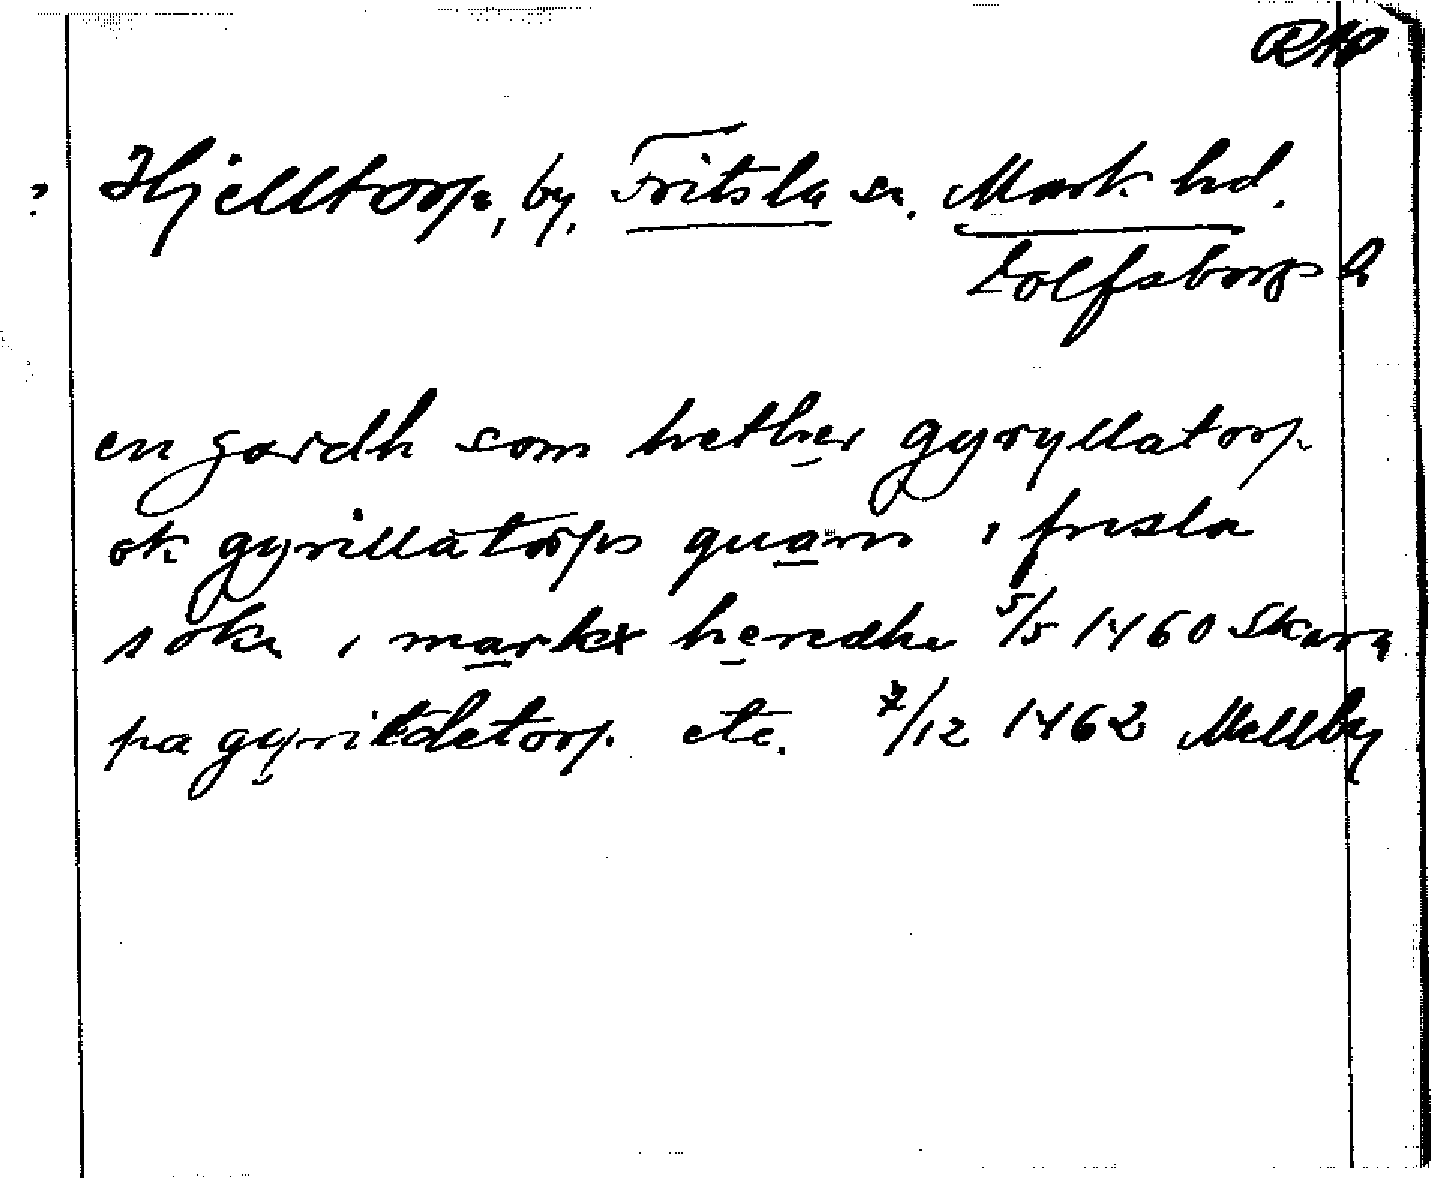 RAp
? Hjelltorp, by, Fritsla sn. Mark hd.
Eolfsborgs l
en gardh som hether gyryllatorp
ok gyrillatorps quarn i frisla
sokn i marks heredhe 5/5 1460 Skara
pa gyrildetorp etc. 7/12 1462 Mellby